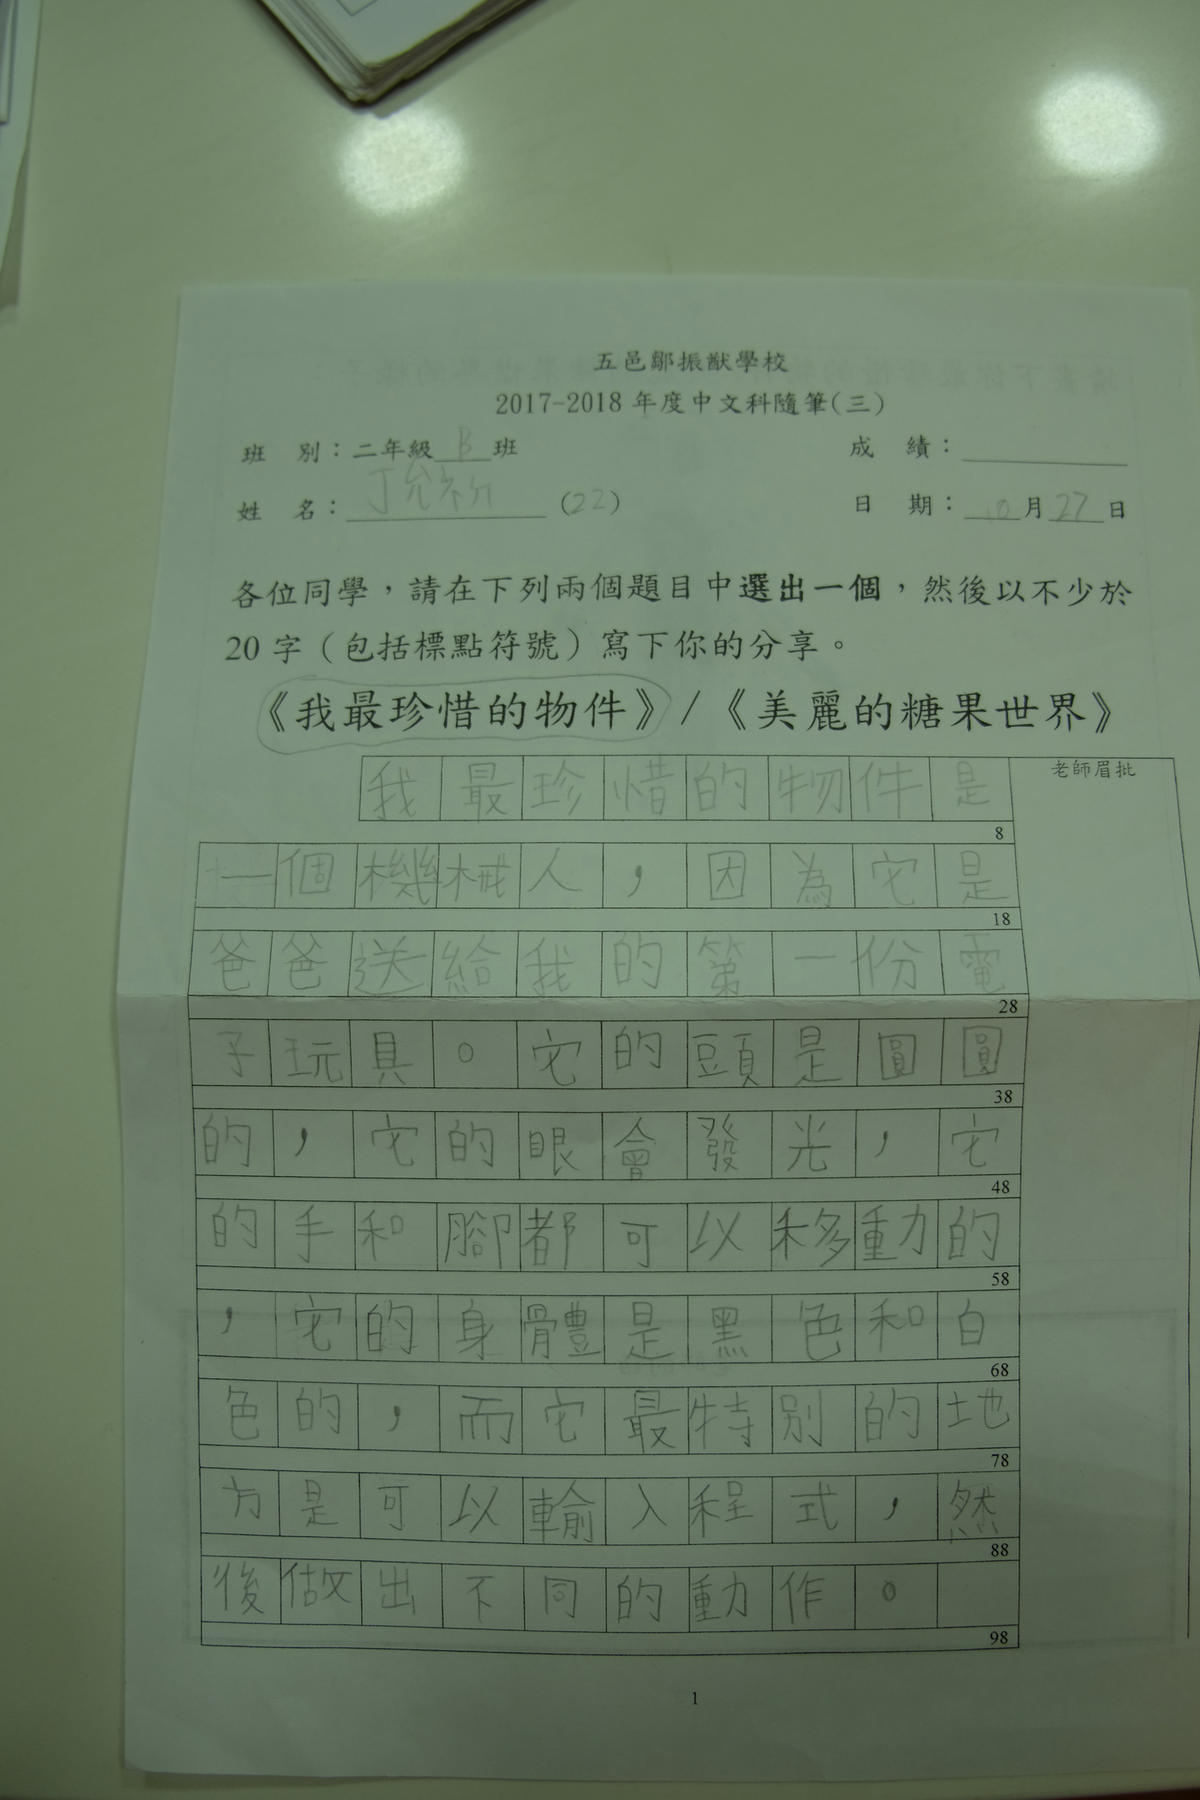 五邑鄒振猷學校
2017-2018 年度中文科隨筆(三)
班 別：二年級 B 班 成 績：
姓 名：丁允祈 (22) 日 期：10月27日
各位同學，請在下列兩個題目中選出一個，然後以不少於
20 字（包括標點符號）寫下你的分享。
《我最珍惜的物件》/《美麗的糖果世界》
老師眉批
我最珍惜的物件是
8
一個機械人，因為它是
18
爸爸送給我的第一份電
28
子玩具。它的頭是圓圓
38
的，它的眼會發光，它
48
的手和腳都可以移動的
58
，它的身體是黑色和白
68
色的，而它最特別的地
78
方是可以輸入程式，然
88
後做出不同的動作。
98
1